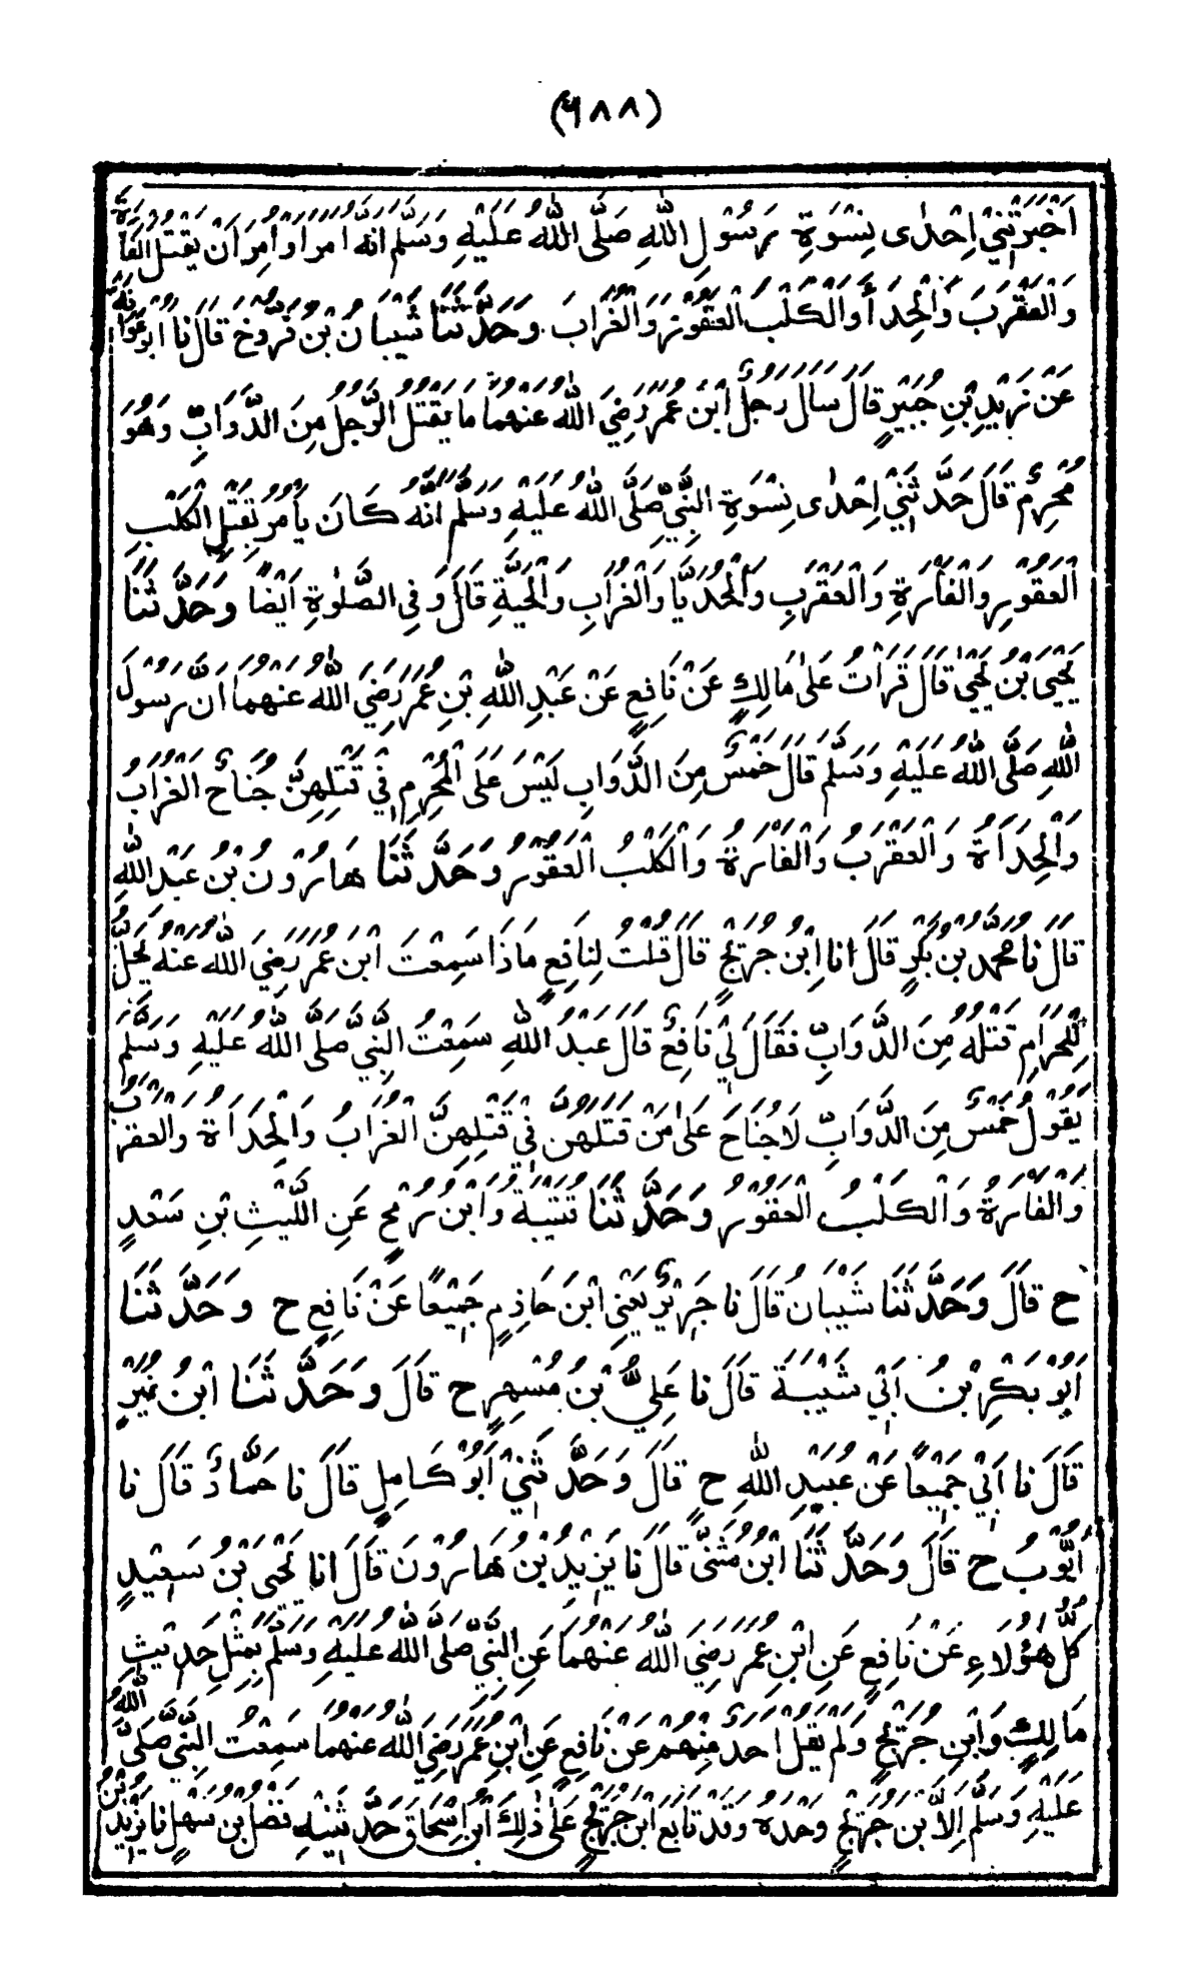 (۶۸۸)
اَخْبَرَتْنِيْ اِحْدٰى نِسْوَةِ رَسُوْلِ اللّٰهِ صَلَّى اللّٰهُ عَلَيْهِ وَسَلَّمَ اَنَّهُ اَمَرَ اَوْ اُمِرَ اَنْ يَقْتُلَ الْفَأْرَةَ
وَالْعَقْرَبَ وَالْحِدَأَ وَالْكَلْبَ الْعَقُوْرَ وَالْغُرَابَ وَحَدَّثَنَا شَيْبَانُ بْنُ فَرُّوْخَ قَالَ نَا اَبُوْ عَوَانَةَ
عَنْ زَيْدِ بْنِ جُبَيْرٍ قَالَ سَاَلَ رَجُلٌ ابْنَ عُمَرَ رَضِيَ اللّٰهُ عَنْهُمَا مَا يَقْتُلُ الرَّجُلُ مِنَ الدَّوَابِّ وَهُوَ
مُحْرِمٌ قَالَ حَدَّثَنِيْ اِحْدٰى نِسْوَةِ النَّبِيِّ صَلَّى اللّٰهُ عَلَيْهِ وَسَلَّمَ اَنَّهُ كَانَ يَأْمُرُ بِقَتْلِ الْكَلْبِ
الْعَقُوْرِ وَالْفَأْرَةِ وَالْعَقْرَبِ وَالْحُدَيَّا وَالْغُرَابِ وَالْحَيَّةِ قَالَ وَفِي الصَّلٰوةِ اَيْضًا وَحَدَّثَنَا
يَحْيَى بْنُ يَحْيٰى قَالَ قَرَاْتُ عَلٰى مَالِكٍ عَنْ نَافِعٍ عَنْ عَبْدِ اللّٰهِ بْنِ عُمَرَ رَضِيَ اللّٰهُ عَنْهُمَا اَنَّ رَسُوْلَ
اللّٰهِ صَلَّى اللّٰهُ عَلَيْهِ وَسَلَّمَ قَالَ خَمْسٌ مِنَ الدَّوَابِ لَيْسَ عَلَى الْمُحْرِمِ فِيْ قَتْلِهِنَّ جُنَاحٌ الْغُرَابُ
وَالْحِدَاَةُ وَالْعَقْرَبُ وَالْفَاْرَةُ وَالْكَلْبُ الْعَقُوْرُ وَحَدَّثَنَا هَارُوْنُ بْنُ عَبْدِ اللّٰهِ
قَالَ نَا مُحَمَّدُ بْنُ بَكْرٍ قَالَ انا اِبْنُ جُرَيْجٍ قَالَ قُلْتُ لِنَافِعٍ مَاذَا سَمِعْتَ ابْنَ عُمَرَ رَضِيَ اللّٰهُ عَنْهُ يُحِلُّ
لِلْحَرَامِ قَتْلَهُ مِنَ الدَّوَابِّ فَقَالَ لِيْ نَافِعٌ قَالَ عَبْدُ اللّٰهِ سَمِعْتُ النَّبِيَّ صَلَّى اللّٰهُ عَلَيْهِ وَسَلَّمَ
يَقُوْلُ خَمْسٌ مِنَ الدَّوَابِّ لَا جُنَاحَ عَلٰى مَنْ قَتَلَهُنَّ فِيْ قَتْلِهِنَّ الْغُرَابُ وَالْحِدَاَةُ وَالْعَقْرَبُ
وَالْفَاْرَةُ وَالْكَلْبُ الْعَقُوْرُ وَحَدَّثَنَا قُتَيْبَةُ وَابْنُ رُمْحٍ عَنِ اللَّيْثِ بْنِ سَعْدٍ
ح قَالَ وَحَدَّثَنَا شَيْبَانُ قَالَ نَا جَرِيْرٌ يَعْنِي ابْنَ حَازِمٍ جَمِيْعًا عَنْ نَافِعٍ ح وَحَدَّثَنَا
اَبُوْ بَكْرِ بْنُ اَبِيْ شَيْبَةَ قَالَ نَا عَلِيُّ بْنُ مُسْهِرٍ ح قَالَ وَحَدَّثَنَا ابْنُ نُمَيْرٍ
قَالَ نَا اَبِيْ جَمِيْعًا عَنْ عُبَيْدِ اللّٰهِ ح قَالَ وَحَدَّثَنِيْ اَبُوْ كَامِلٍ قَالَ نَا حَمَّادٌ قَالَ نَا
اَيُّوْبُ ح قَالَ وَحَدَّثَنَا ابْنُ مُثَنّٰى قَالَ نَا يَزِيْدُ بْنُ هَارُوْنَ قَالَ انا يَحْيَى بْنُ سَعِيْدٍ
كُلُّ هٰؤُلَاءِ عَنْ نَافِعٍ عَنِ ابْنِ عُمَرَ رَضِيَ اللّٰهُ عَنْهُمَا عَنِ النَّبِيِّ صَلَّى اللّٰهُ عَلَيْهِ وَسَلَّمَ بِمِثْلِ حَدِيْثِ
مَالِكٍ وَابْنِ جُرَيْجٍ وَلَمْ يَقُلْ اَحَدٌ مِنْهُمْ عَنْ نَافِعٍ عَنِ ابْنِ عُمَرَ رَضِيَ اللّٰهُ عَنْهُمَا سَمِعْتُ النَّبِيَّ صَلَّى اللّٰهُ
عَلَيْهِ وَسَلَّمَ اِلَّا ابْنُ جُرَيْجٍ وَحْدَهُ وَقَدْ تَابَعَ ابْنَ جُرَيْجٍ عَلٰى ذٰلِكَ ابْنُ اِسْحَاقَ حَدَّثَنِيْهِ فَضْلُ بْنُ سَهْلٍ نَا يَزِيْدُ بْنُ